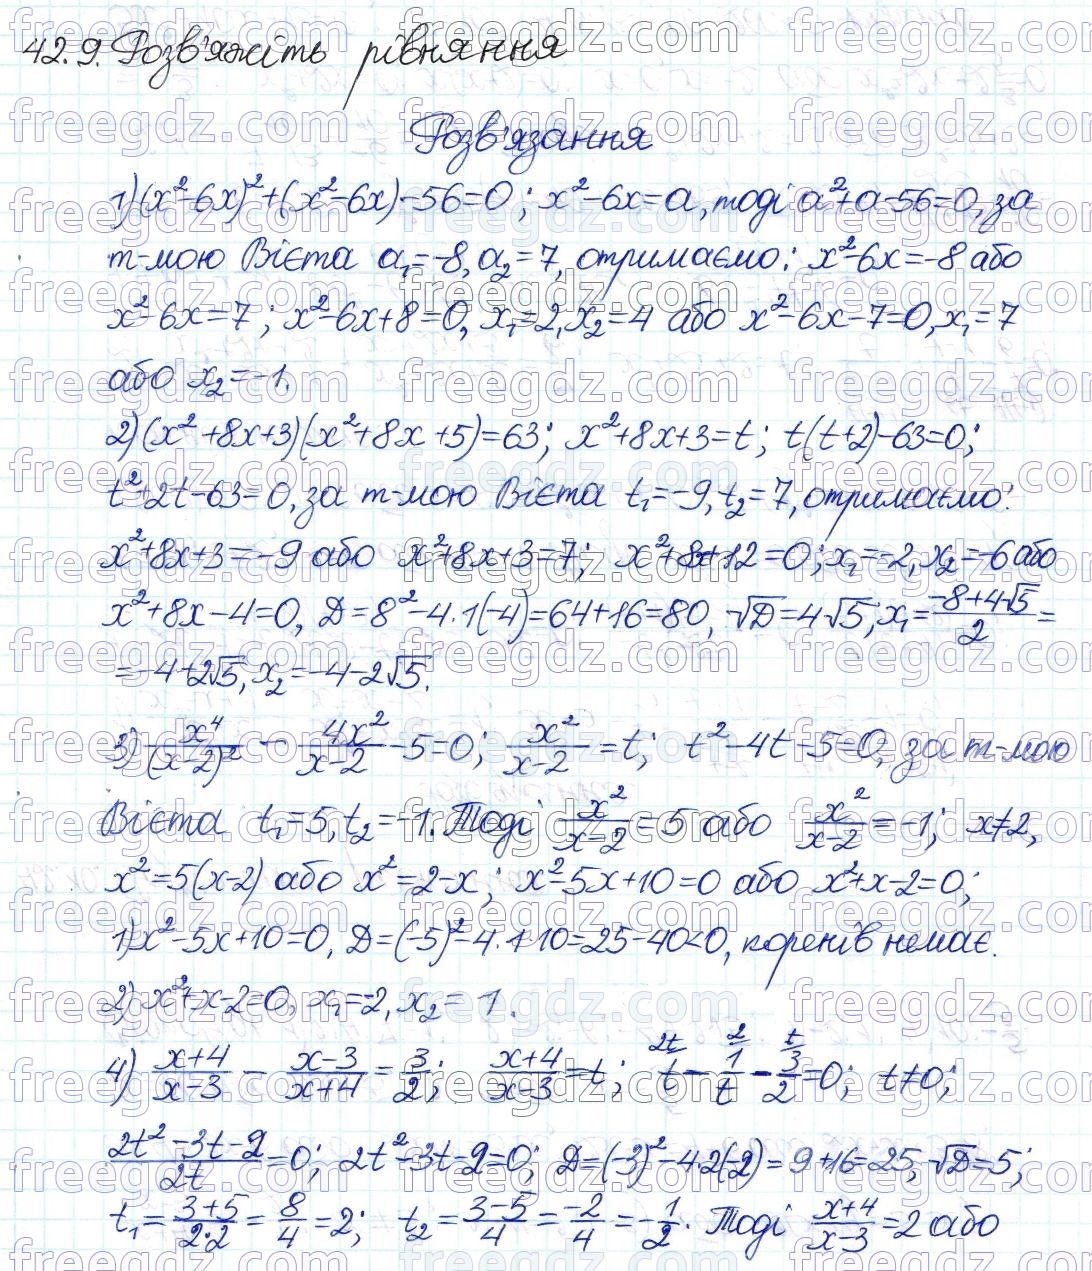 42.9. Розв'яжіть рівняння
Розв'язання
1) (x²-6x)²+(x²-6x)-56=0; x²-6x=a, тоді a²+a-56=0, за
т-мою Вієта a₁=-8, a₂=7, отримаємо: x²-6x=-8 або
x²-6x=7; x²-6x+8=0, x₁=2, x₂=4 або x²-6x-7=0, x₁=7
або x₂=-1.
2) (x²+8x+3)(x²+8x+5)=63; x²+8x+3=t; t(t+2)-63=0;
t²+2t-63=0, за т-мою Вієта t₁=-9, t₂=7, отримаємо:
x²+8x+3=-9 або x²+8x+3=7; x²+8x+12=0; x₁=-2, x₂=-6 або
x²+8x-4=0, D=8²-4·1(-4)=64+16=80, √D=4√5; x₁=(-8+4√5)/2=
=-4+2√5, x₂=-4-2√5.
3) x⁴/(x-2)² - 4x²/(x-2) -5=0; x²/(x-2)=t; t²-4t-5=0, за т-мою
Вієта t₁=5, t₂=-1. Тоді x²/(x-2)=5 або x²/(x-2)=-1; x≠2,
x²=5(x-2) або x²=2-x; x²-5x+10=0 або x²+x-2=0;
1) x²-5x+10=0, D=(-5)²-4·1·10=25-40<0, коренів немає.
2) x²+x-2=0, x₁=-2, x₂=1.
4) (x+4)/(x-3) - (x-3)/(x+4) = 3/2; (x+4)/(x-3)=t; 2t/ t - 2/ 1/t - t/ 3/2=0; t≠0;
(2t²-3t-2)/2t=0; 2t²-3t-2=0; D=(-3)²-4·2(-2)=9+16=25, √D=5;
t₁=(3+5)/(2·2)=8/4=2; t₂=(3-5)/4=-2/4=-1/2. Тоді (x+4)/(x-3)=2 або
freegdz.com